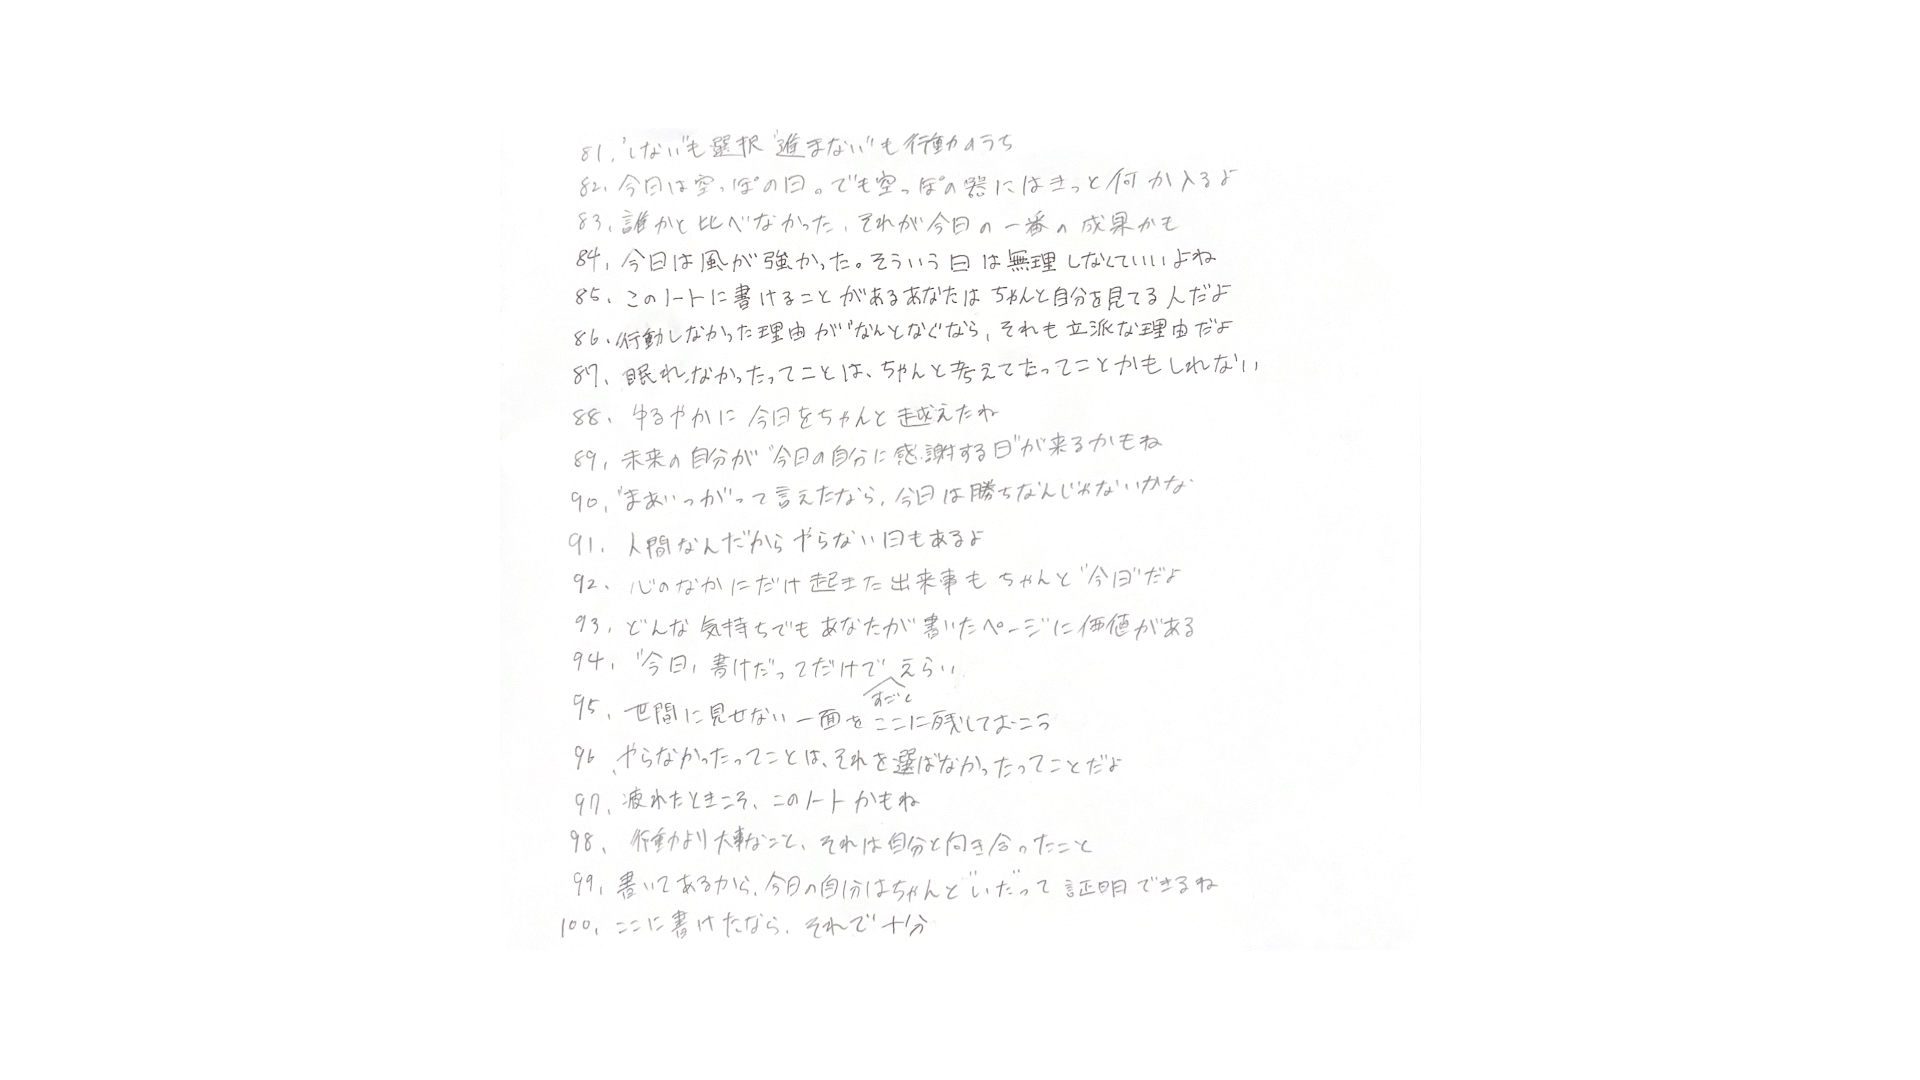 81. "しない"も選択 "進まない"も行動のうち
82. 今日は空っぽの日。でも空っぽの器にはきっと何か入るよ
83. 誰かと比べなかった、それが今日の一番の成果かも
84. 今日は風が強かった。そういう日は無理しなくていいよね
85. このノートに書けることがあるあなたはちゃんと自分を見てる人だよ
86. 行動しなかった理由が"なんとなく"なら、それも立派な理由だよ
87. 眠れなかったってことは、ちゃんと考えてたってことかもしれない
88. ゆるやかに今日をちゃんと越えたね
89. 未来の自分が"今日の自分に感謝する日"が来るかもね
90. "まあいっか"って言えたなら、今日は勝ちなんじゃないかな
91. 人間なんだからやらない日もあるよ
92. 心のなかにだけ起きた出来事もちゃんと"今日"だよ
93. どんな気持ちでもあなたが書いたページに価値がある
94. "今日、書けた"ってだけでえらい
すごく
95. 世間に見せない一面をここに残しておこう
96、やらなかったってことは、それを選ばなかったってことだよ
97. 疲れたときこそ、このノートかもね
98、行動より大事なこと、それは自分と向き合ったこと
99. 書いてあるから、今日の自分はちゃんと"いた"って証明できるね
100. ここに書けたなら、それで十分